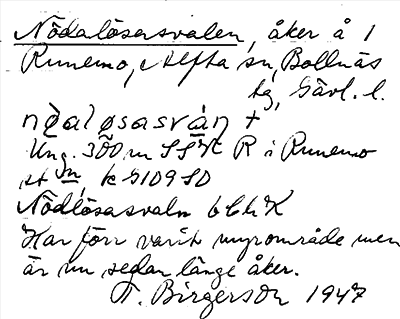 Nödalösasvalen, åker å 1
Runemo, Alfta sn, Bollnäs
tg, Gävl. l.
nø̀aløsasván +
Ung. 300 m SSV R i Runemo
st k G109 SO
Nödlösasvaln bbhK
Har förr varit myrområde men
är nu sedan länge åker.
T. Birgerson 1947